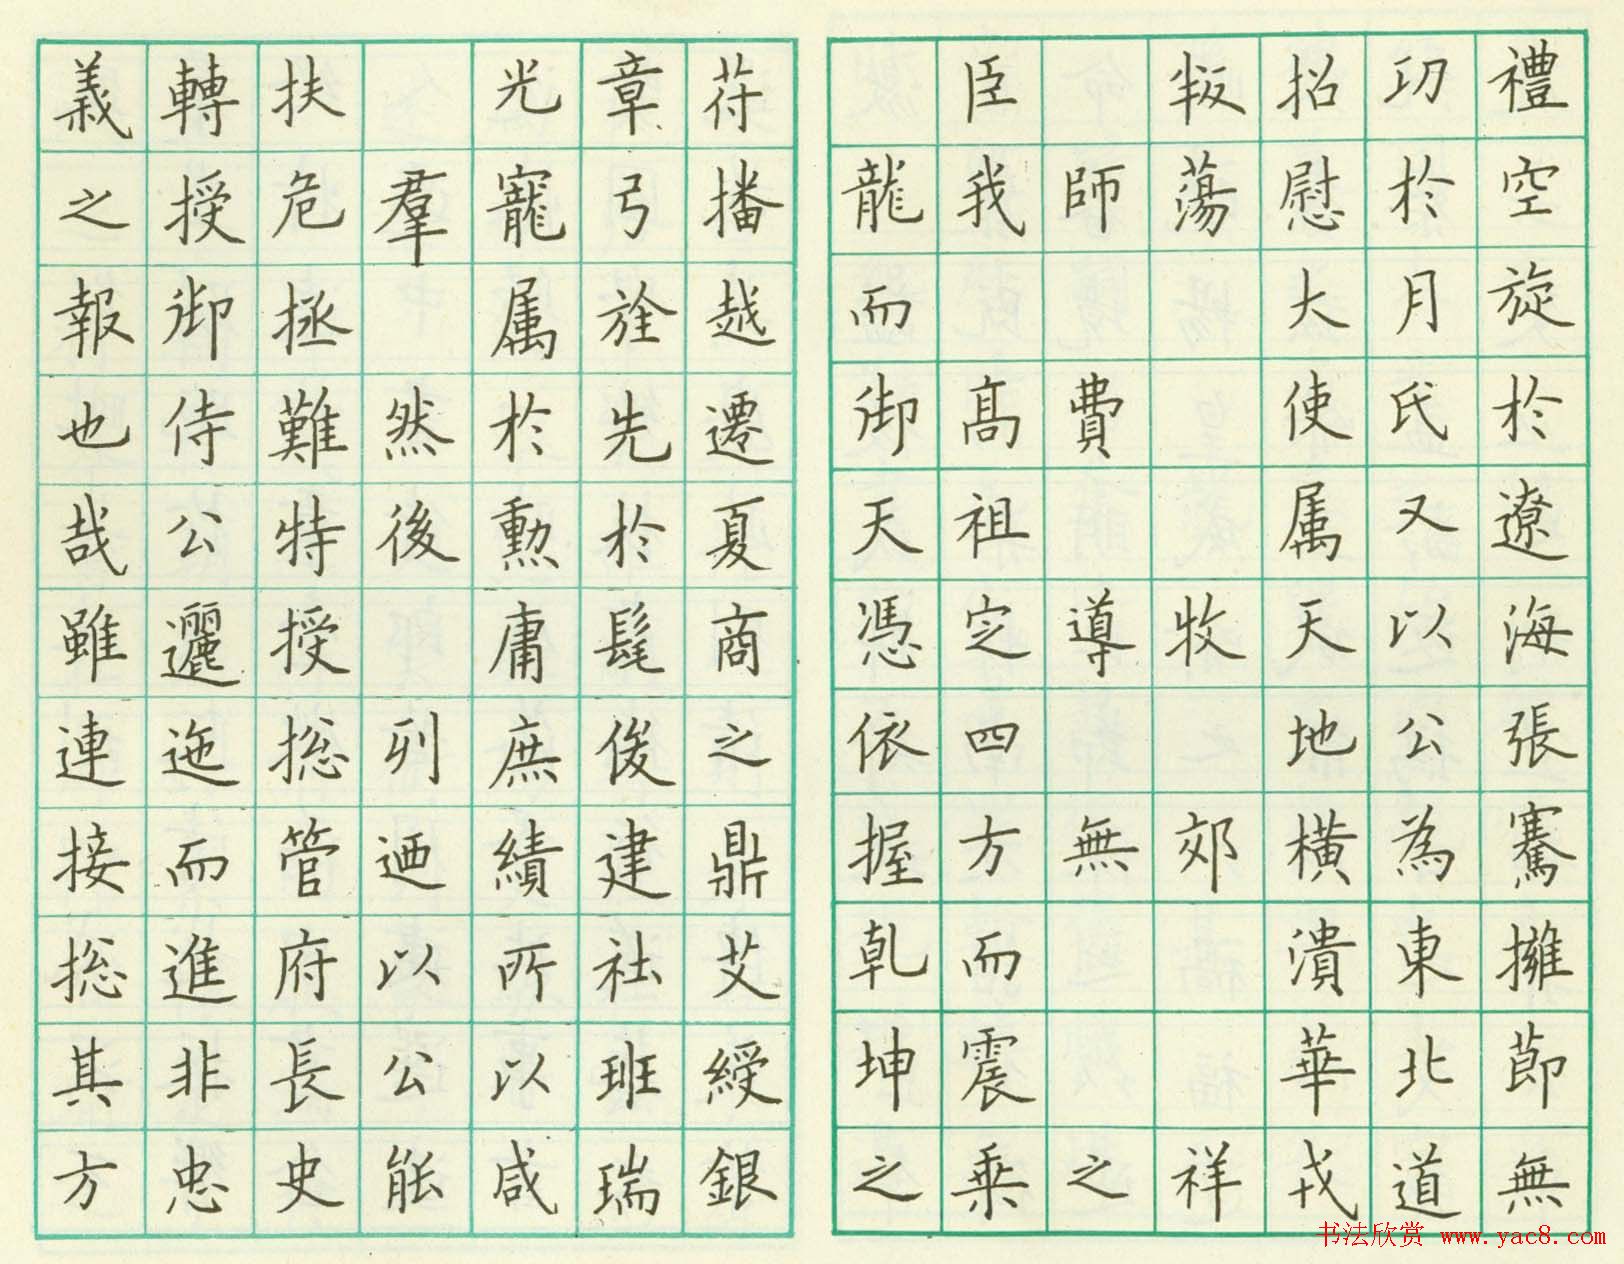 禮空旋於遼海張騫擁節無
功於月氏又以公為東北道
招慰大使属天地橫潰華戎
叛蕩牧郊祥
師費導無之
臣我高祖定四方而震乗
龍而御天憑依握乾坤之
苻播越遷夏商之鼎艾綬銀
章弓旌先於髦俊建社班瑞
光寵属於勲庸庶績所以咸
羣然後列迺以公能
扶危拯難特授揔管府長史
轉授御侍公邐迤而進非忠
義之報也哉雖連接揔其方
书法欣赏 www.yac8.com